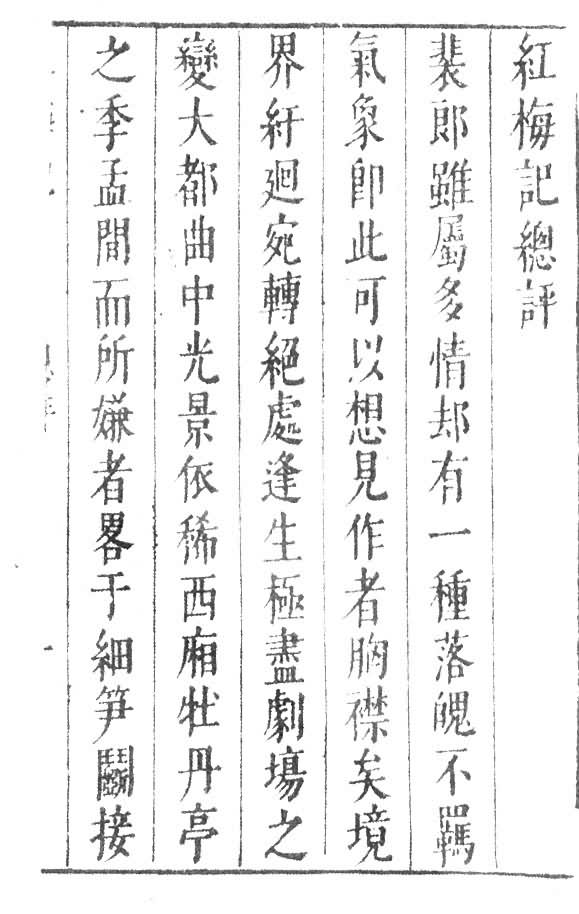 紅梅記總評
裴郎雖屬多情却有一種落魄不羈
氣象卽此可以想見作者胸襟矣境
界紆廻宛轉絕處逢生極盡劇塲之
變大都曲中光景依稀西廂牡丹亭
之季孟間而所嫌者畧于細笋鬭接